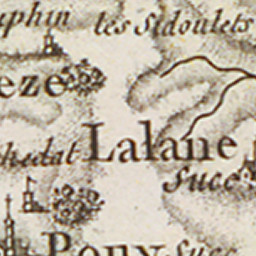 phin les Sidoulets
eze
hedat Lalane
succ.
Pouy succ